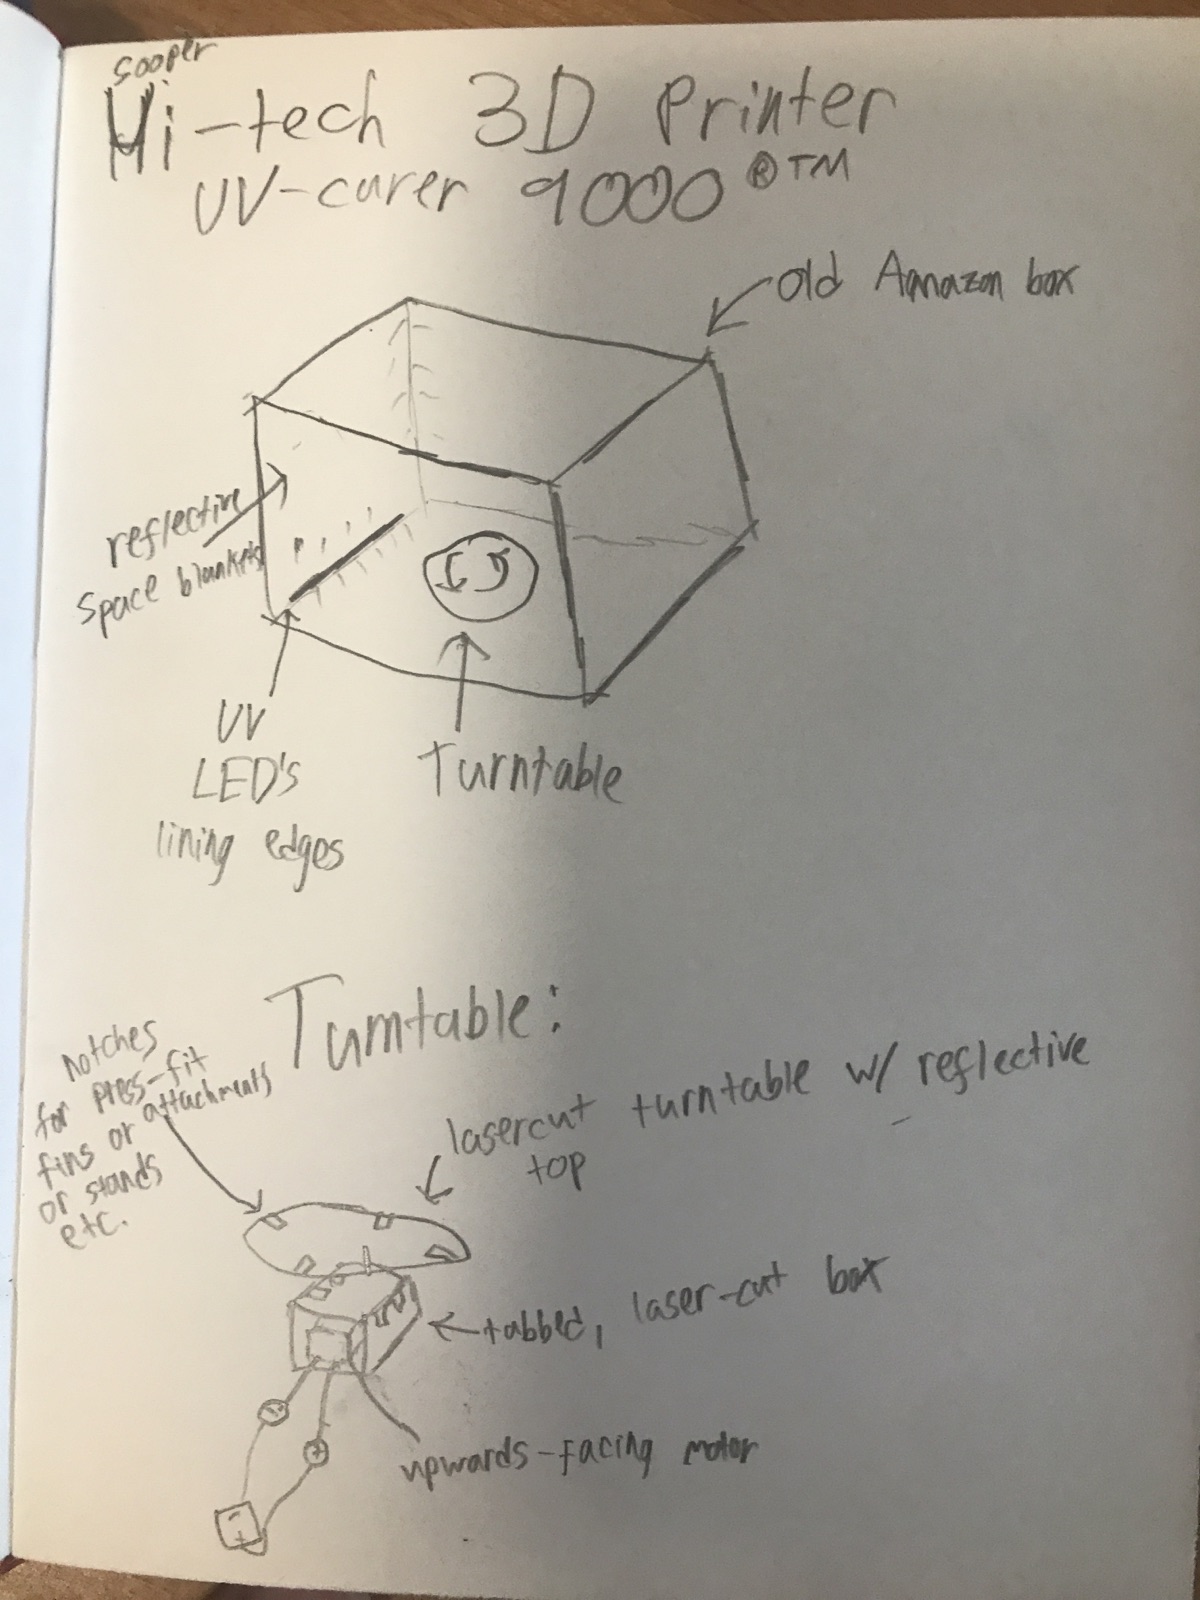 Sooper
Hi-tech 3D Printer
UV-curer 9000 ®TM
old Amazon box
reflective
space blankets
UV
LED's
lining edges
Turntable
Turntable:
notches
for press-fit
fins or attachments
or stands
etc.
lasercut turntable w/ reflective
top
tabbed, laser-cut box
upwards-facing motor
- +
- +